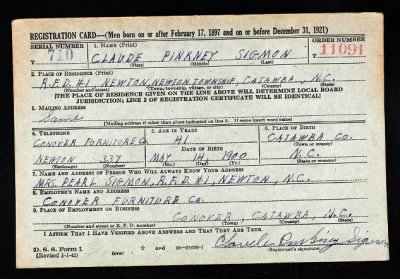 REGISTRATION CARD—(Men born on or after February 17, 1897 and on or before December 31, 1921)
SERIAL NUMBER 1. NAME (Print) ORDER NUMBER
710 CLAUDE PINKNEY SIGMON 11091
(First) (Middle) (Last)
2. PLACE OF RESIDENCE (Print)
R.F.D. #1, NEWTON, NEWTON TOWNSHIP, CATAWBA, N.C.
(Number and street) (Town, township, village, or city) (County) (State)
[THE PLACE OF RESIDENCE GIVEN ON THE LINE ABOVE WILL DETERMINE LOCAL BOARD
JURISDICTION; LINE 2 OF REGISTRATION CERTIFICATE WILL BE IDENTICAL]
3. MAILING ADDRESS
Same
[Mailing address if other than place indicated on line 2. If same insert word same]
4. TELEPHONE 5. AGE IN YEARS 6. PLACE OF BIRTH
CONOVER FURNITURE Co. 41 CATAWBA CO.
DATE OF BIRTH (Town or county)
NEWTON 337 MAY 14, 1900 N.C.
(Exchange) (Number) (Mo.) (Day) (Yr.) (State or country)
7. NAME AND ADDRESS OF PERSON WHO WILL ALWAYS KNOW YOUR ADDRESS
MRS. PEARL SIGMON, R.F.D. #1, NEWTON, N.C.
8. EMPLOYER'S NAME AND ADDRESS
CONOVER FURNITURE Co.
9. PLACE OF EMPLOYMENT OR BUSINESS
CONOVER, CATAWBA, N.C.
(Number and street or R. F. D. number) (Town) (County) (State)
I AFFIRM THAT I HAVE VERIFIED ABOVE ANSWERS AND THAT THEY ARE TRUE.
D. S. S. Form 1
(Revised 1-1-42) (over) 16-21630-1 (Registrant's signature)
Claude Pinkney Sigmon